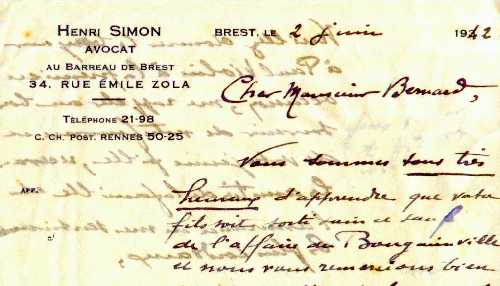 HENRI SIMON
AVOCAT
AU BARREAU DE BREST
34, RUE ÉMILE ZOLA
TÉLÉPHONE 21-98
C. CH. POST. RENNES 50-25
BREST, LE 2 juin 1942
Cher Monsieur Bernard,
AFF.
c/
Nous sommes tous très
heureux d'apprendre que votre
fils soit sorti sain et sauf
de l'affaire du Bougainville
et nous vous remercions bien